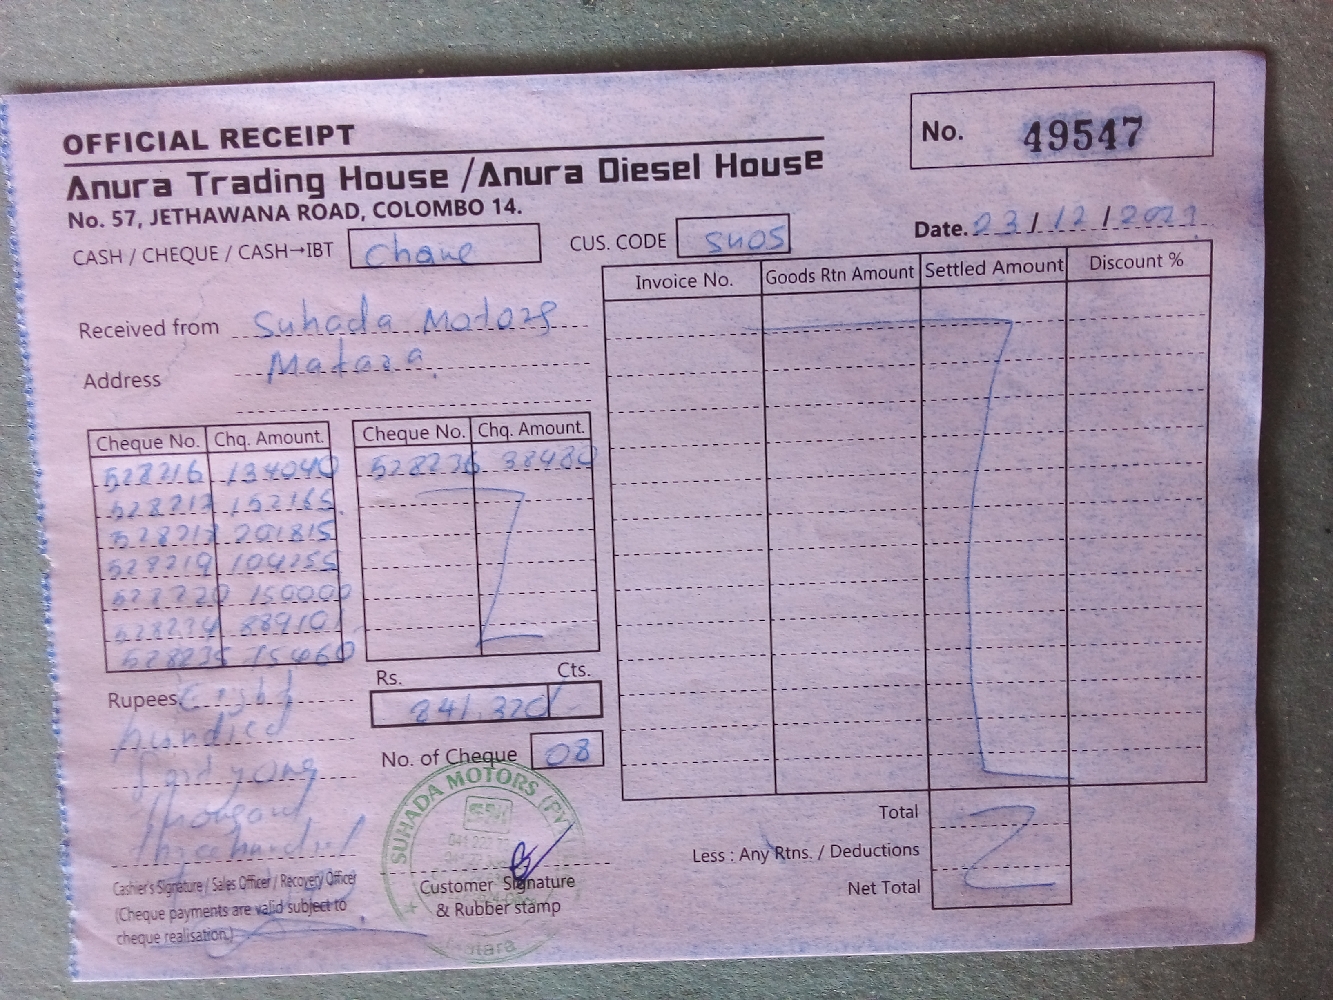 OFFICIAL RECEIPT
No. 49547
Anura Trading House / Anura Diesel House
No. 57, JETHAWANA ROAD, COLOMBO 14.
CASH / CHEQUE / CASH→IBT
CUS. CODE SU05
Date. 23/12/2021
Received from Suhada Motors
Address Matara
Invoice No. Goods Rtn Amount Settled Amount Discount %
Cheque No. Chq. Amount. Cheque No. Chq. Amount.
528216 134040 528236 38480
528217 152165
528218 201815
528219 104255
528220 150000
528234
528235 15460
Rupees Eight
hundred
thousand
three hundred
Rs. Cts.
841,320/-
No. of Cheque 08
SUHADA MOTORS (PV
Matara
Customer Signature
& Rubber stamp
Cashier's Signature / Sales Officer / Recovery Officer
(Cheque payments are valid subject to
cheque realisation.)
Total
Less : Any Rtns. / Deductions
Net Total